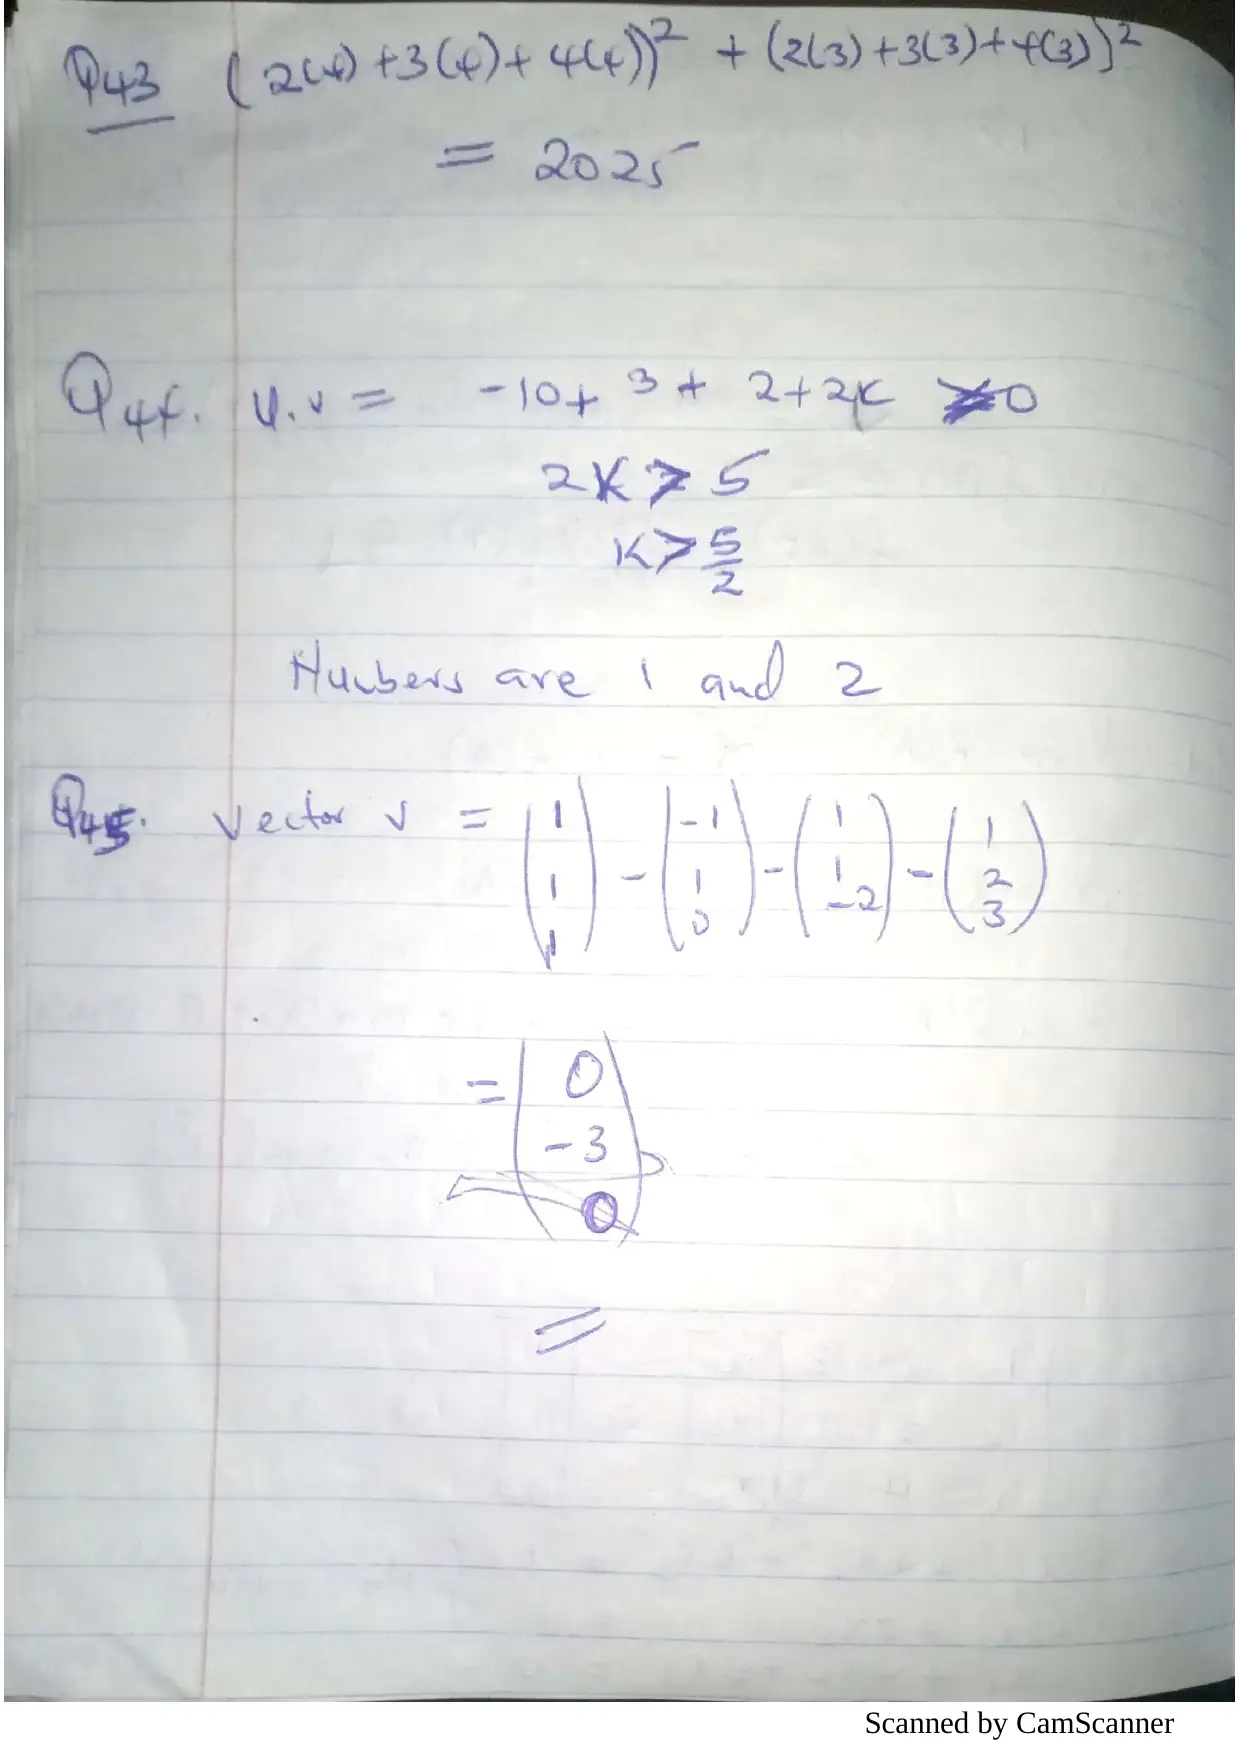 Q43 (2(4)+3(4)+4(4))² + (2(3)+3(3)+4(3))²
= 2025
Q44. u.v = -10+ 3 + 2+2k > 0
2k > 5
k > 5/2
Numbers are 1 and 2
Q45. Vector v = (1 1 1) - (-1 1 0) - (1 1 -2) - (1 2 3)
= (0 -3 0)
=
Scanned by CamScanner